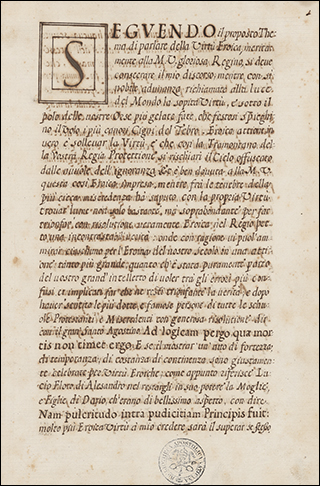 SEGVENDO il proposto The
ma di parlare della Virtù Eroica, merita
mente alla M. V. gloriosa Regina, si deve
consecrare il mio discorso, mentre con sì
nobile adunanza richiamate alla luce
del Mondo la sopita Virtù, e sotto il
polo delle nostre Orse più gelate fate, che festosi spieghi
no il Volo i più canori Cigni del Tebro. Eroica attione
è sollevar la Virtù, e che con la Tramontana del
la Vostra Regia Protettione, si rischiari il Cielo offuscato
dalle nuvole dell'ignoranza, et è ben dovuta alla M. V.
questa così Eroica Impresa, mentre, frà le tenebre della
più cieca miscredenza hà saputo, con la propria Virtù
trovar lume non solo bastante, mà soprabondante per far
trionfar, con risolutione veramente Eroica nel Regio pet
to una incontrastabile onde con ragione si può am
mirar per l'Eroina del nostro Secolo in una attio
ne tanto più grande, quanto ch'è stata puramente parto
del vostro grand'intelletto di voler trà gli errori più con
fusi, et implicati far che ne resti trionfante la verità, e dop
havere sentito le più dotte, e famose penne di tutte le scuo
le Protestanti, e Miscredenti con generosa risolutione di
con el gran Santo Agostino Ad logicam pergo quæ mor
tis non timet ergo. E se il mostrar un'atto di fortezza,
di temperanza, di costanza, di continenza, sono giustamen
te celebrate per Virtù Eroiche, come appunto riferisce Lu
cio Floro di Alesandro nel restargli in suo potere la Moglie,
e Figlie di Dario, ch'erano di bellissimo aspetto, con dire
Nam pulcritudo intra pudicitiam Principis fuit
molto più Eroica Virtù à mio credere sarà il superar se stesso